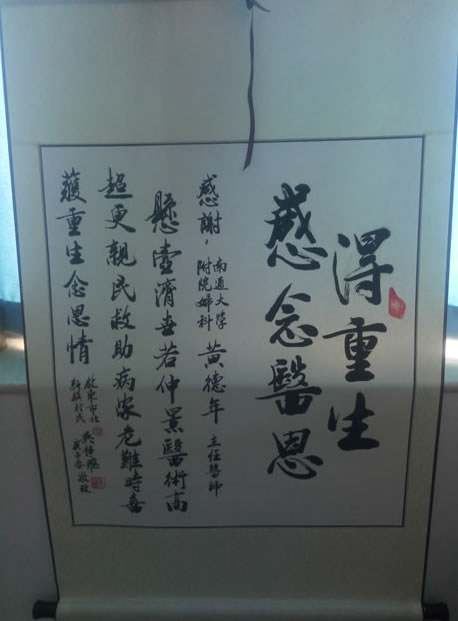 得重生
感念醫恩
感謝，南通大学附院婦科 黄德年 主任醫師
懸壺濟世若仲景醫術高
超更親民救助病家老難時喜
獲重生念恩情
敬贈